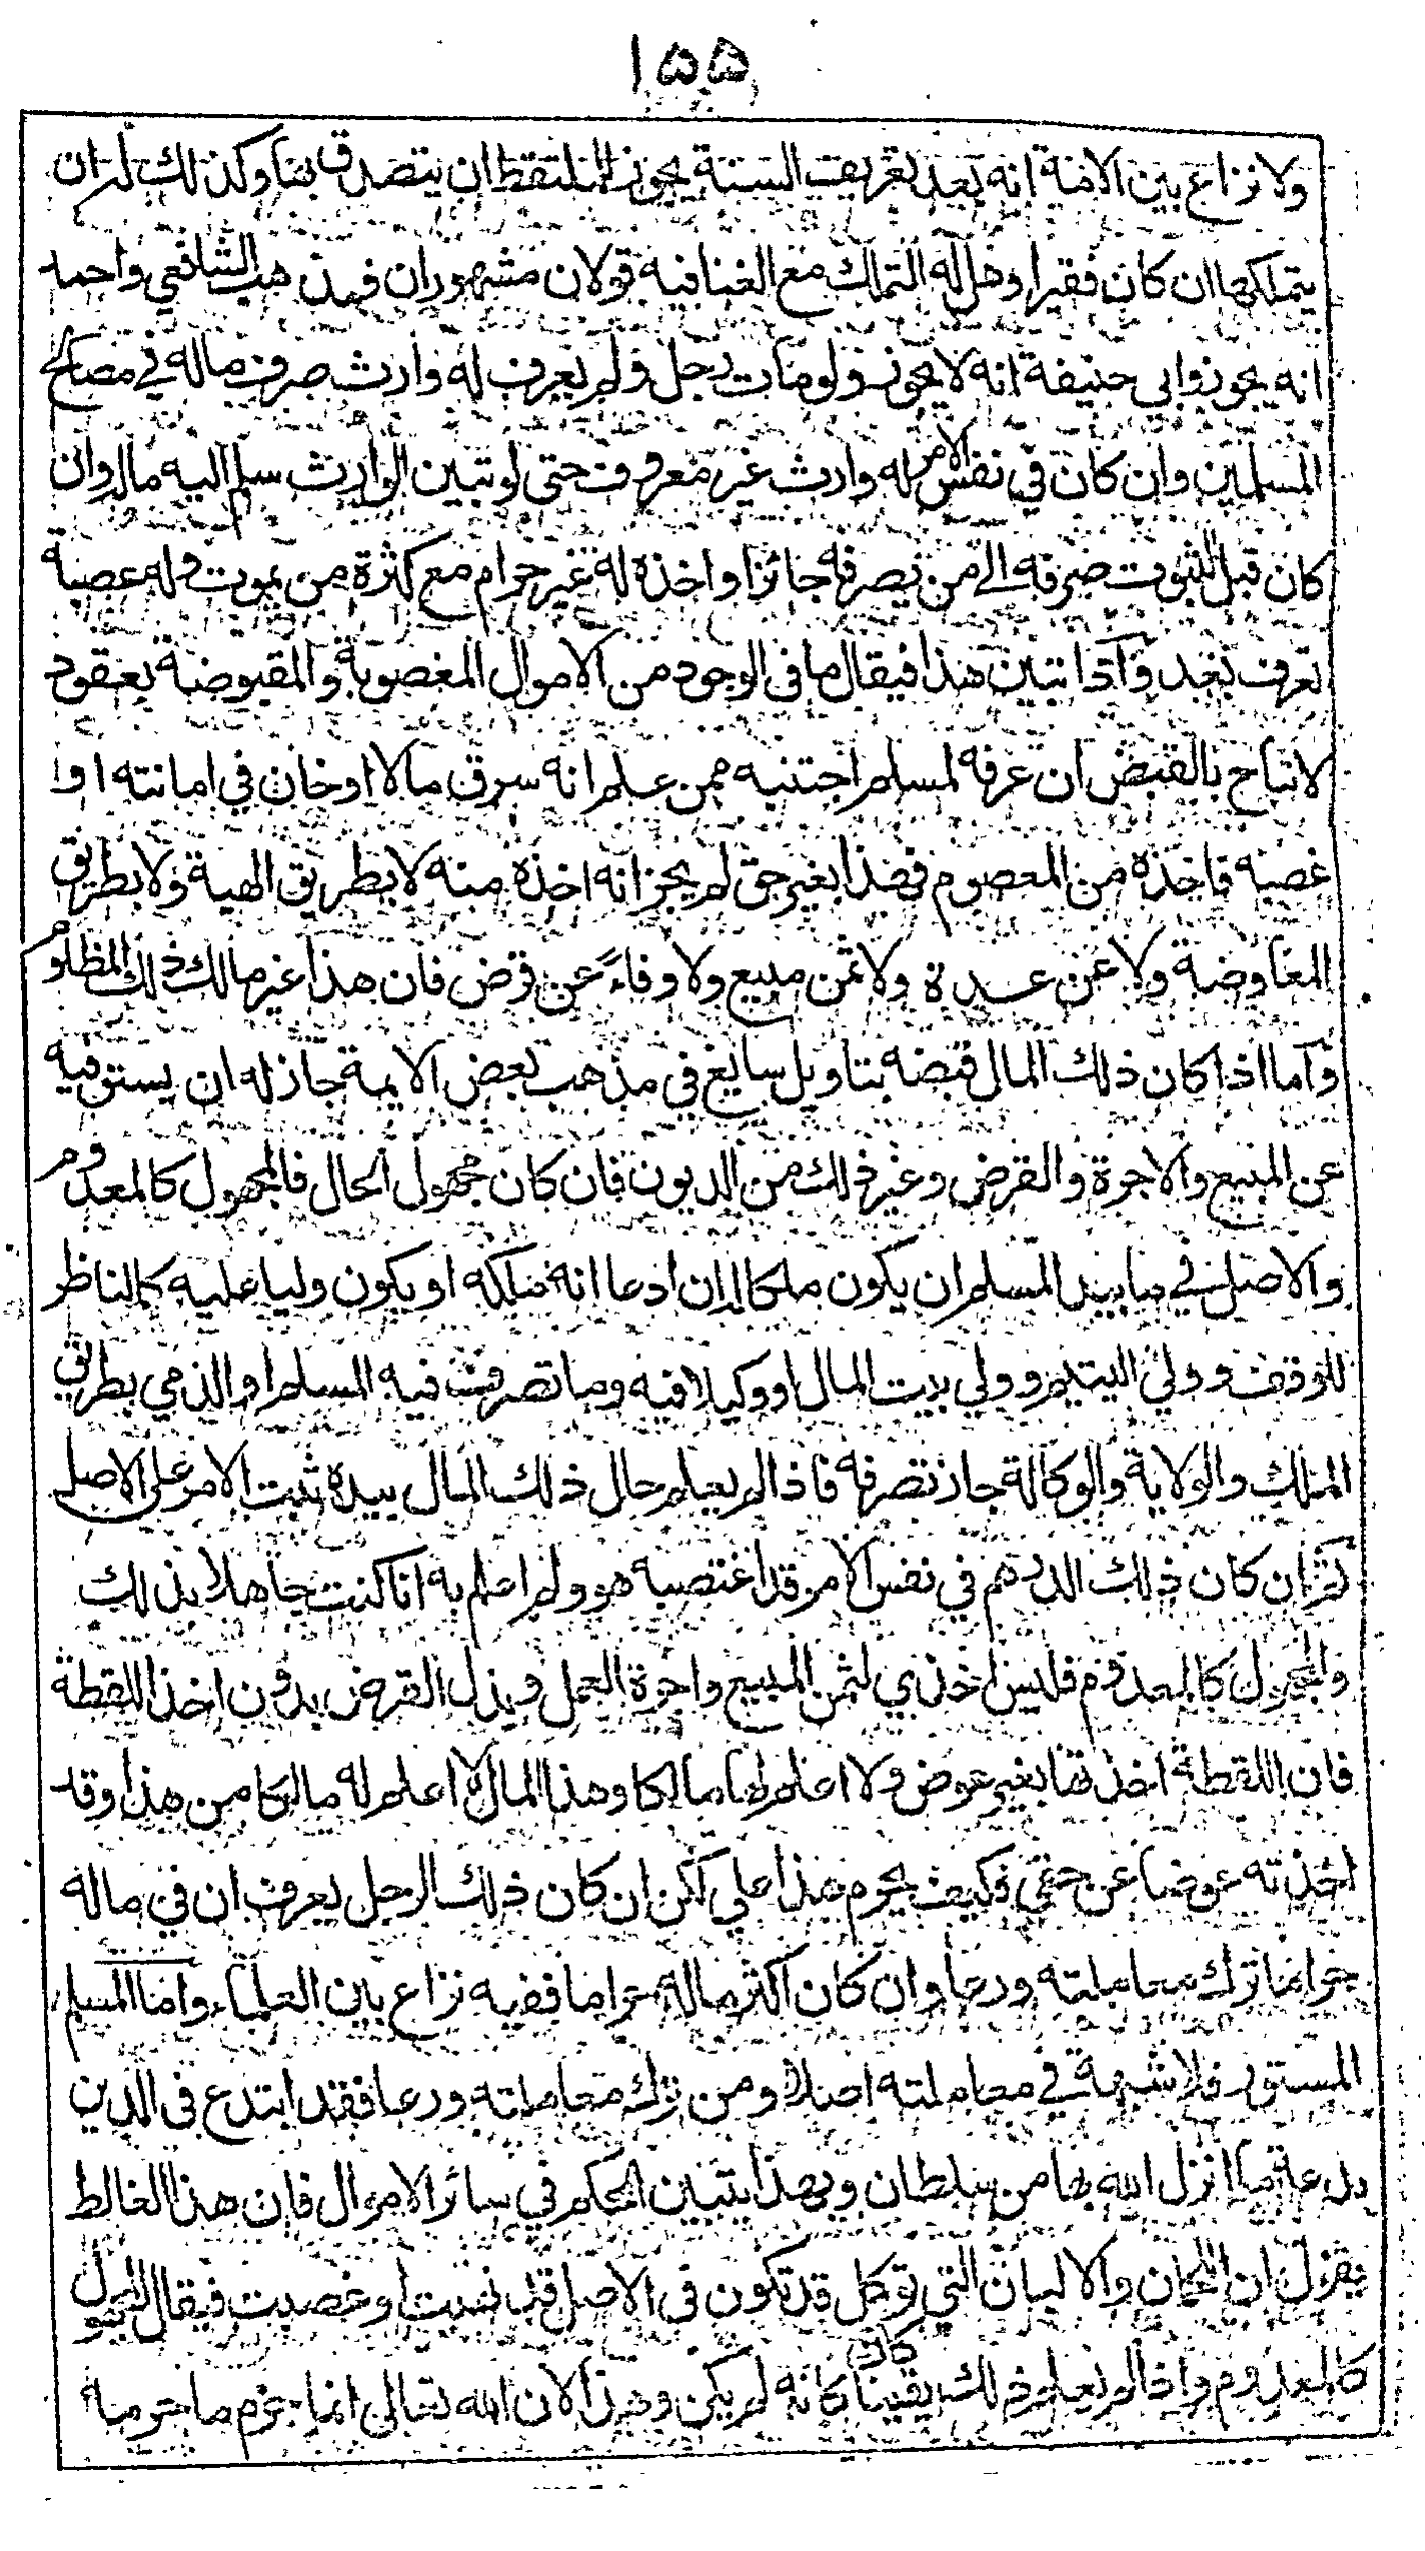 ١٥٥
ولا نزاع بين الائمة انه بعد تعريف السنة يجوز للملتقط ان يتصدق بها وكذلك له ان
يتملكها ان كان فقيرا وهل له التملك مع الغنا فيه قولان مشهوران فمذهب الشافعي واحمد
انه يجوز وابي حنيفة انه لا يجوز ولو مات رجل ولم يعرف له وارث صرف ماله في مصالح
المسلمين وان كان في نفس الامر له وارث غير معروف حتى لو تبين الوارث سلم اليه ماله وان
كان قبل الثبوت صرفه الى من يصرفه جائزا واخذه له غير حرام مع كثرة من يموت وله عصبة
تعرف بعد واذا تبين هذا فيقال ما في الوجود من الاموال المغصوبة والمقبوضة بعقود
لا تباح بالقبض ان عرفه المسلم اجتنبه فمن علم انه سرق مالا او خان في امانته او
غصبه فاخذه من المعصوم فهذا بغير حق لم يجز انه اخذه منه لا بطريق الهبة ولا بطريق
المعاوضة ولا عن عدة ولا ثمن مبيع ولا وفاءً عن قرض فان هذا غير مالك ذلك المظلوم
وأما اذا كان ذلك المال قبضه بتاويل سايغ في مذهب بعض الايمة جاز له ان يستوفيه
عن المبيع والاجرة والقرض وغير ذلك من الديون فان كان مجهول الحال فالمجهول كالمعدوم
والاصل في ما بيد المسلم ان يكون ملكا له ان ادعا انه ملكه او يكون وليا عليه كالناظر
للوقف وولي اليتيم وولي بيت المال او وكيلا فيه وما تصرفت فيه المسلم او الذمي بطريق
الملك والولاية والوكالة جاز تصرفه فاذا لم يعلم حال ذلك المال بيده ثبت الامر على الاصل
ثم ان كان ذلك الدرهم في نفس الامر قد اغتصبه هو ولم اعلم به انا كنت جاهلا بذلك
والمجهول كالمعدوم فليس اخذي لثمن المبيع واجرة العمل وبذل القرض بدون اخذ اللقطة
فان اللقطة اخذتها بغير عوض ولا اعلم لها مالكا وهذا المال لا اعلم له مالكا من هذا وقد
اخذته عوضا عن حقي فكيف يحرم هذا علي لكن ان كان ذلك الرجل يعرف ان في ماله
حراما ترك معاملته ورعا وان كان اكثر ماله حراما ففيه نزاع بين العلماء واما المسلم
المستور فلا شبهة في معاملته اصلا ومن ترك معاملته ورعا فقد ابتدع في الدين
بدعة ما انزل الله بها من سلطان وبهذا يتبين الحكم في سائر الاموال فان هذا الغالط
يقول ان اللحمان والالبان التي توكل قد تكون في الاصل قد نهبت او غصبت فيقال المجهول
كالمعدوم واذا لم يعلم ذلك يقينا كان كانه لم يكن وهذا لان الله تعالى انما حرم ما حرمه